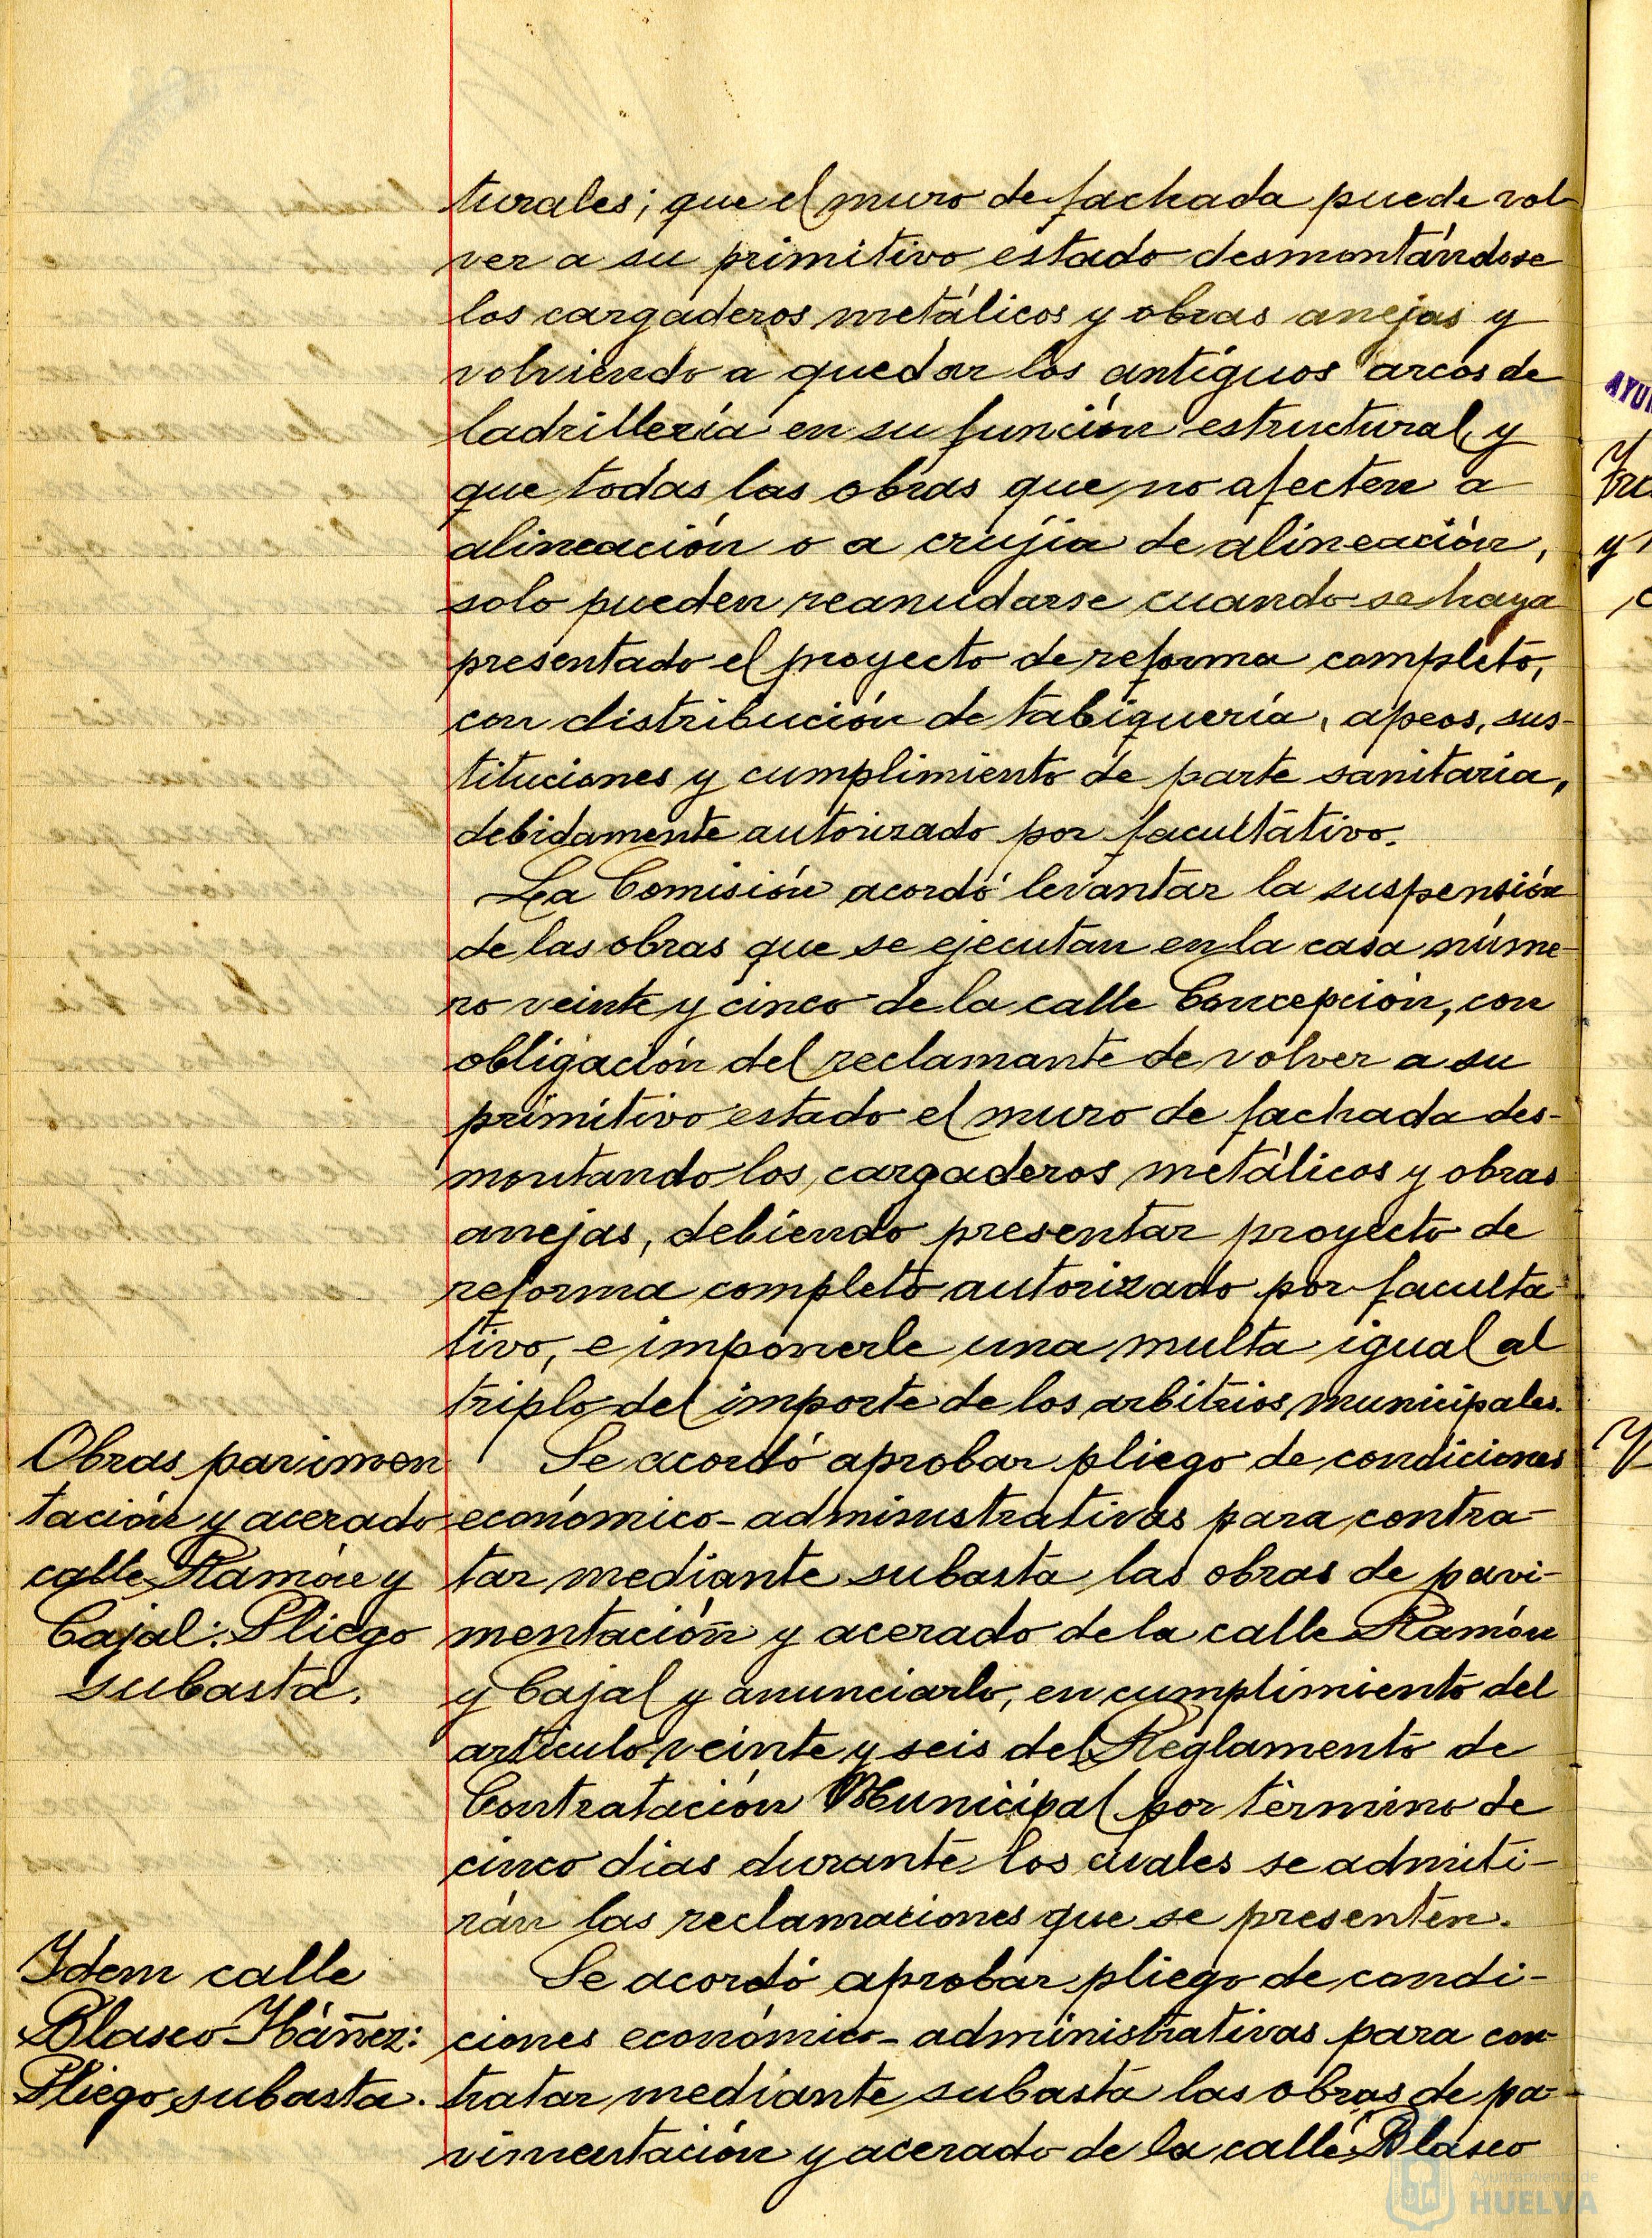 turales; que el muro de fachada puede vol-
ver a su primitivo estado desmontándose
los cargaderos metálicos y obras anejas y
volviendo a quedar los antiguos arcos de
ladrillería en su función estructural, y
que todas las obras que no afecten a
alineación o a crujía de alineación,
solo pueden reanudarse cuando se haya
presentado el proyecto de reforma completo,
con distribución de tabiquería, apeos, sus-
tituciones y cumplimiento de parte sanitaria,
debidamente autorizado por facultativo.
La Comisión acordó levantar la suspensión
de las obras que se ejecutan en la casa núme-
ro veinte y cinco de la calle Concepción, con
obligación del reclamante de volver a su
primitivo estado el muro de fachada des-
montando los cargaderos metálicos y obras
anejas, debiendo presentar proyecto de
reforma completo autorizado por faculta-
tivo, e imponerle una multa igual al
triplo del importe de los arbitrios municipales.
Obras pavimen
tación y acerado
calle Ramón y
Cajal: Pliego
subasta.
Se acordó aprobar pliego de condiciones
económico-administrativas para contra-
tar mediante subasta las obras de pavi-
mentación y acerado de la calle Ramón
y Cajal y anunciarlo, en cumplimiento del
artículo veinte y seis del Reglamento de
Contratación Municipal por término de
cinco dias durante los cuales se admiti-
rán las reclamaciones que se presenten.
Idem calle
Blasco Ibáñez:
Pliego subasta.
Se acordó aprobar pliego de condi-
ciones económico-administrativas para con-
tratar mediante subasta las obras de pa-
vimentación y acerado de la calle Blasco
Ayuntamiento de
HUELVA